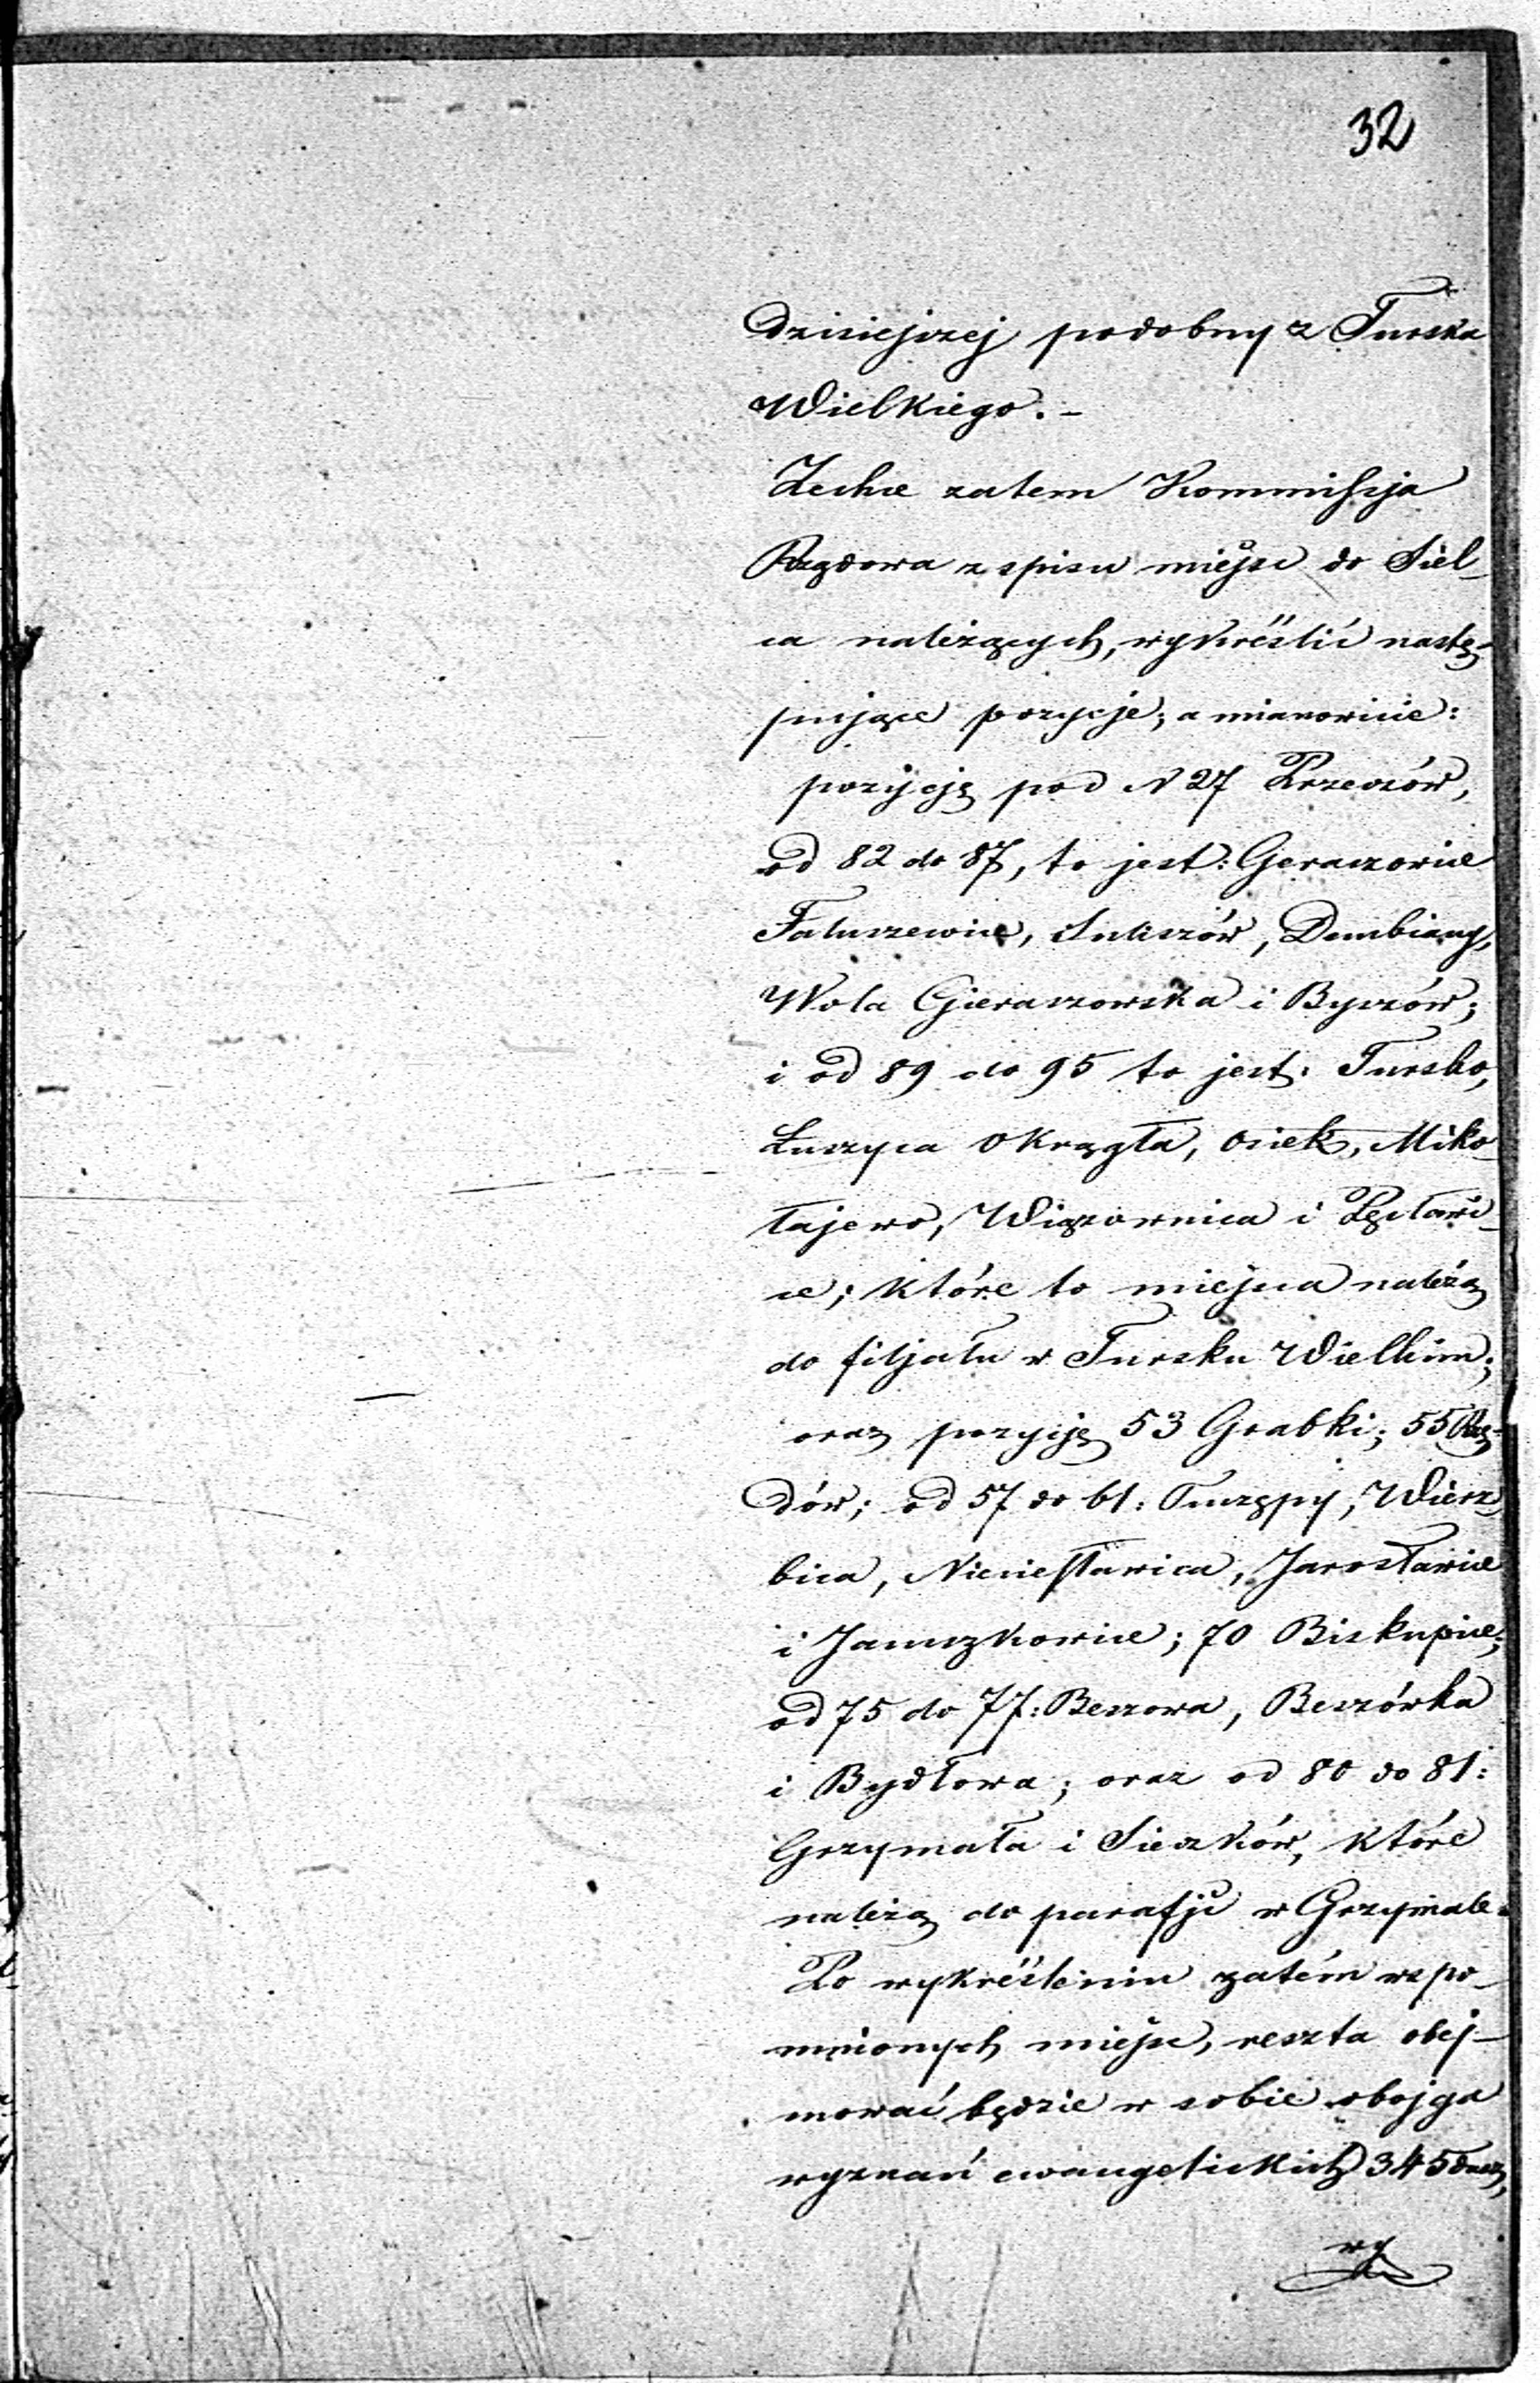 32
dzisiejszej podobny z Turska
Wielkiego. -
Zechce zatem Kommissja
Rządowa z spisu miejsc do Siel-
ca należących, wykréślić nastę-
pujące pozycje; a mianowicie:
pozycję pod N 27 Przeczów,
od 82 do 87, to jest: Geraszowice
Faluszewice, Suliszów, Dembiany,
Wola Gieraszowska i Byszów;
i od 89 do 95 to jest: Tursko,
Łuszyca Okrągła, Osiek, Miko-
łajewo, Wiązownica i Pęcławi-
ce; które to miejsca należą
do filjału w Tursku Wielkim;
oraz pozycję 53 Grabki; 55 Rzę-
dów; od 57 do 61: Tuczępy, Wierz
bica, Niciesławica, Jarosławice
i Januszkowice; 70 Biskupice;
od 75 do 77: Beszowa, Beszówka
i Bydłowa; oraz od 80 do 81:
Grzymała i Sieczków, które
należą do parafji w Grzymale.
Po wykréśleniu zatém wspo-
mnionych miejsc, reszta obej-
mować będzie w sobie obojga
wyznań ewangelickich 345 dusz,
wy